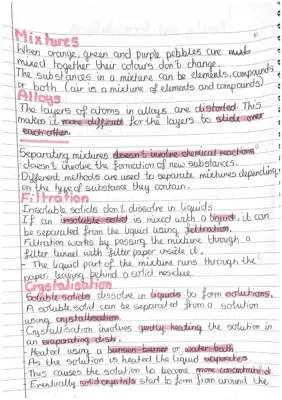 Mixtures
When orange, green and purple pebbles are
mixed together their colours don't change.
The substances in a mixture can be elements, compounds
or both (air is a mixture of elements and compounds)
Alloys
The layers of atoms in alloys are distorted. This
makes it more difficult for the layers to slide over
each other.
Separating mixtures doesn't involve chemical reactions
doesn't involve the formation of new substances.
Different methods are used to separate mixtures depending
on the type of substance they contain.
Filtration
Insoluble solids don't dissolve in liquids
If an insoluble solid is mixed with a liquid, it can
be separated from the liquid using filtration.
Filtration works by passing the mixture through a
filter funnel with filter paper inside it.
- The liquid part of the mixture runs through the
paper, leaving behind a solid residue.
Crystalisation
Soluble solids dissolve in liquids to form solutions.
A soluble solid can be separated from a solution
using crystallisation.
Crystallisation involves gently heating the solution in
an evaporating dish.
- Heated using a bunsen burner or water bath
- As the solution is heated the liquid evaporates.
This causes the solution to become more concentrated
- Eventually solid crystals start to form from around the